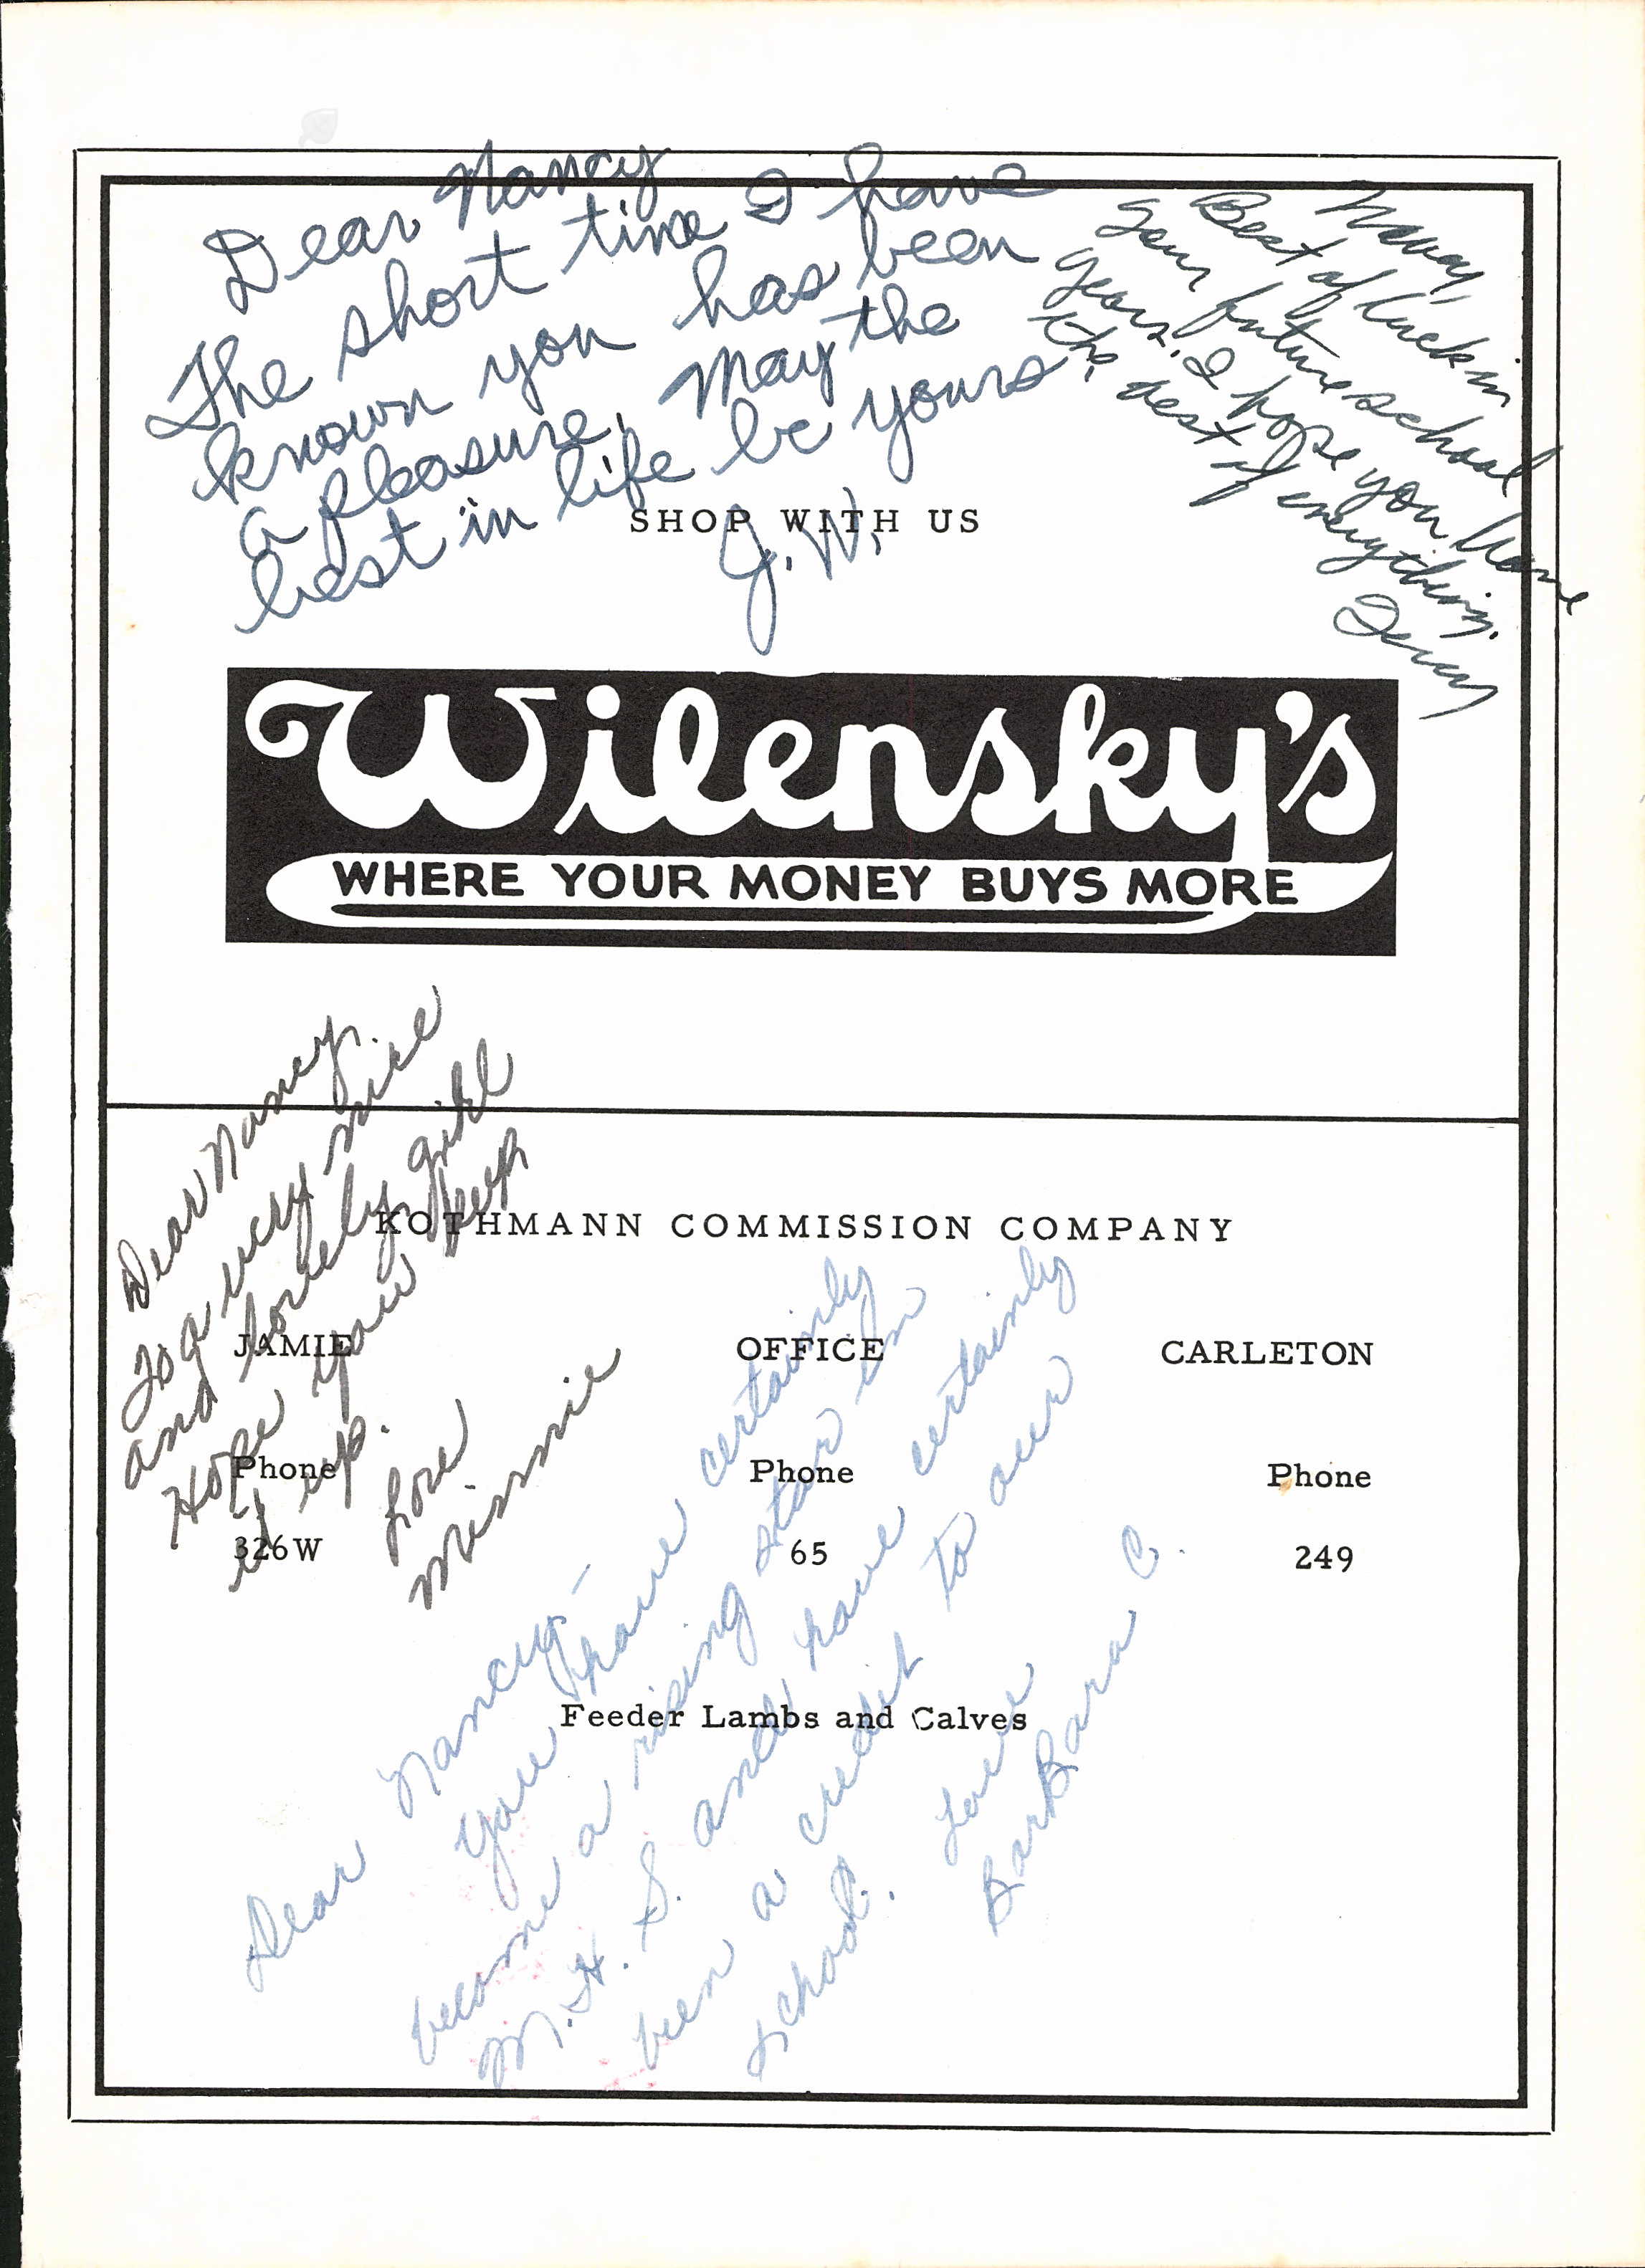 Dear Nancy
The short time I have
known you has been
a pleasure, May the
best in life be yours
J.W.
Nancy,
Best of luck in
your future school
years. I hope you have
the best of everything.
SHOP WITH US
Wilensky's
WHERE YOUR MONEY BUYS MORE
Dear Nancy,
To a very nice
and lovely girl
Hope you keep
it up.
Love
Minnie
KOTHMANN COMMISSION COMPANY
JAMIE OFFICE CARLETON
Phone Phone Phone
326W 65 249
Feeder Lambs and Calves
Dear Nancy—
You have certainly
become a rising star in
M.H.S. and have certainly
been a credit to our
school.
Love
BarBara C.